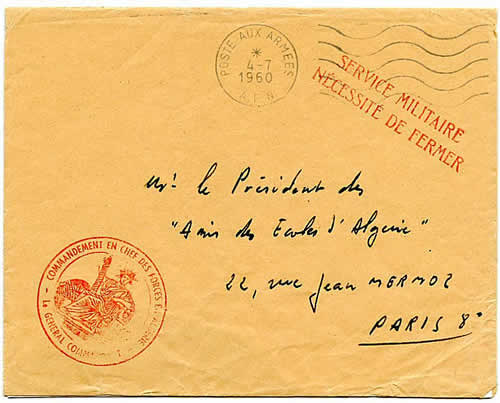 POSTE AUX ARMÉES
*
4-7
1960
A.F.N
SERVICE MILITAIRE
NÉCESSITÉ DE FERMER
Mr. le Président des
"Amis des Ecoles d'Algérie"
22, rue Jean MERMOZ
PARIS 8e
COMMANDEMENT EN CHEF DES FORCES EN ALGÉRIE
- Le GÉNÉRAL